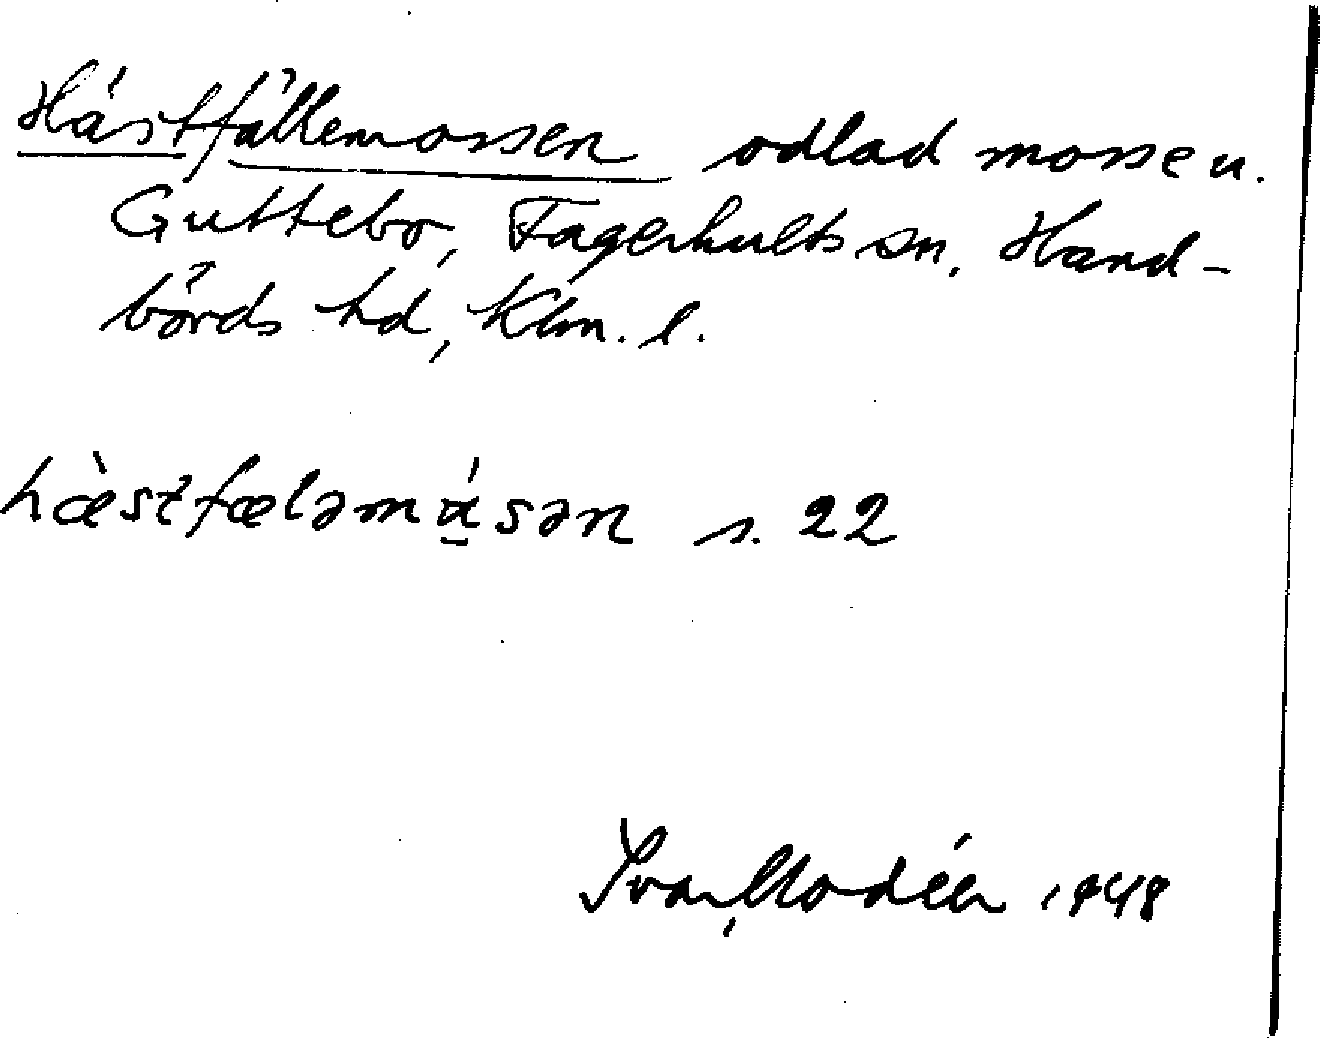 Hästfällemossen odlad mosse u.
Guttebo, Fagerhults sn, Hand-
börds hd, Klm. l.
hæ̀stfæləmásən s. 22
Ivar Modéer 1948